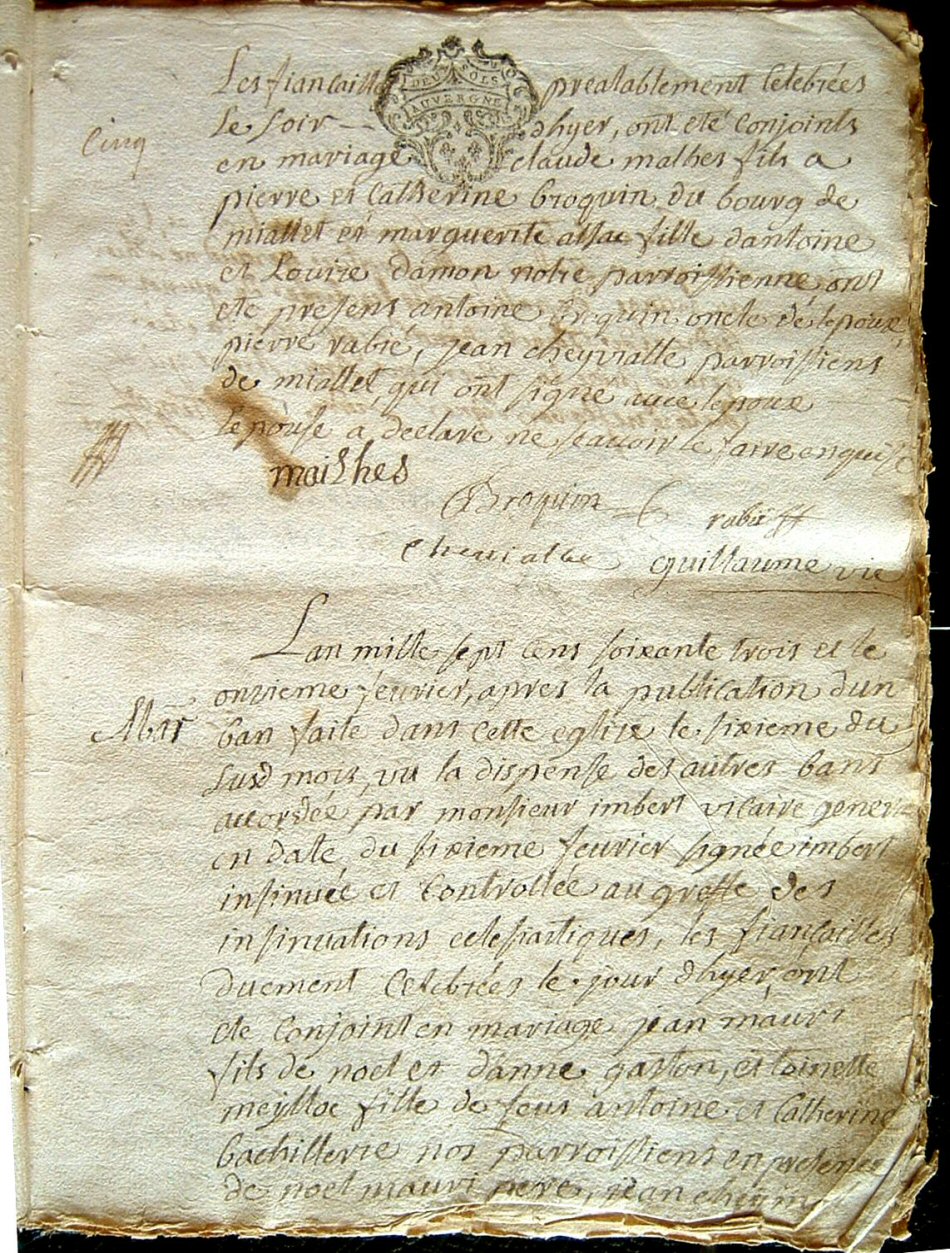 DEUX SOLS
AUVERGNE
Les fiancailles prealablement Celebrées
Cinq
Le soir dhyer, ont eté Conjoints
en mariage claude mathes fils a
pierre et Catherine broquin du bourg de
miallet et marguerite fille dantoine
et Louize damon notre parroissienne ont
ete presens antoine broquin oncle de lepoux,
pierre rabié, jean cheyvialle parroissiens
de miallet, qui ont signe avec lepoux
lepouse a declare ne scavoir le faire enquise
maishes
Broquin rabié
Chevialle guillaume vic
Lan mille sept cens soixante trois et le
onzieme fevrier, apres la publication dun
Mar
ban faite dans cette eglise le sixieme du
susd mois, vu la dispense des autres bans
accordée par monsieur imbert vicaire gener
en date du sixieme fevrier signée imbert
insinuée et Controllée au greffe des
insinuations eclesiastiques, les fiancailles
duement Celebrées le jour dhyer, ont
ete Conjoint en mariage jean mauri
fils de noel et danne gaston, et toinette
fille de feus antoine et Catherine
bachillerie nos parroissiens en presence
de noel mauri pere, jean